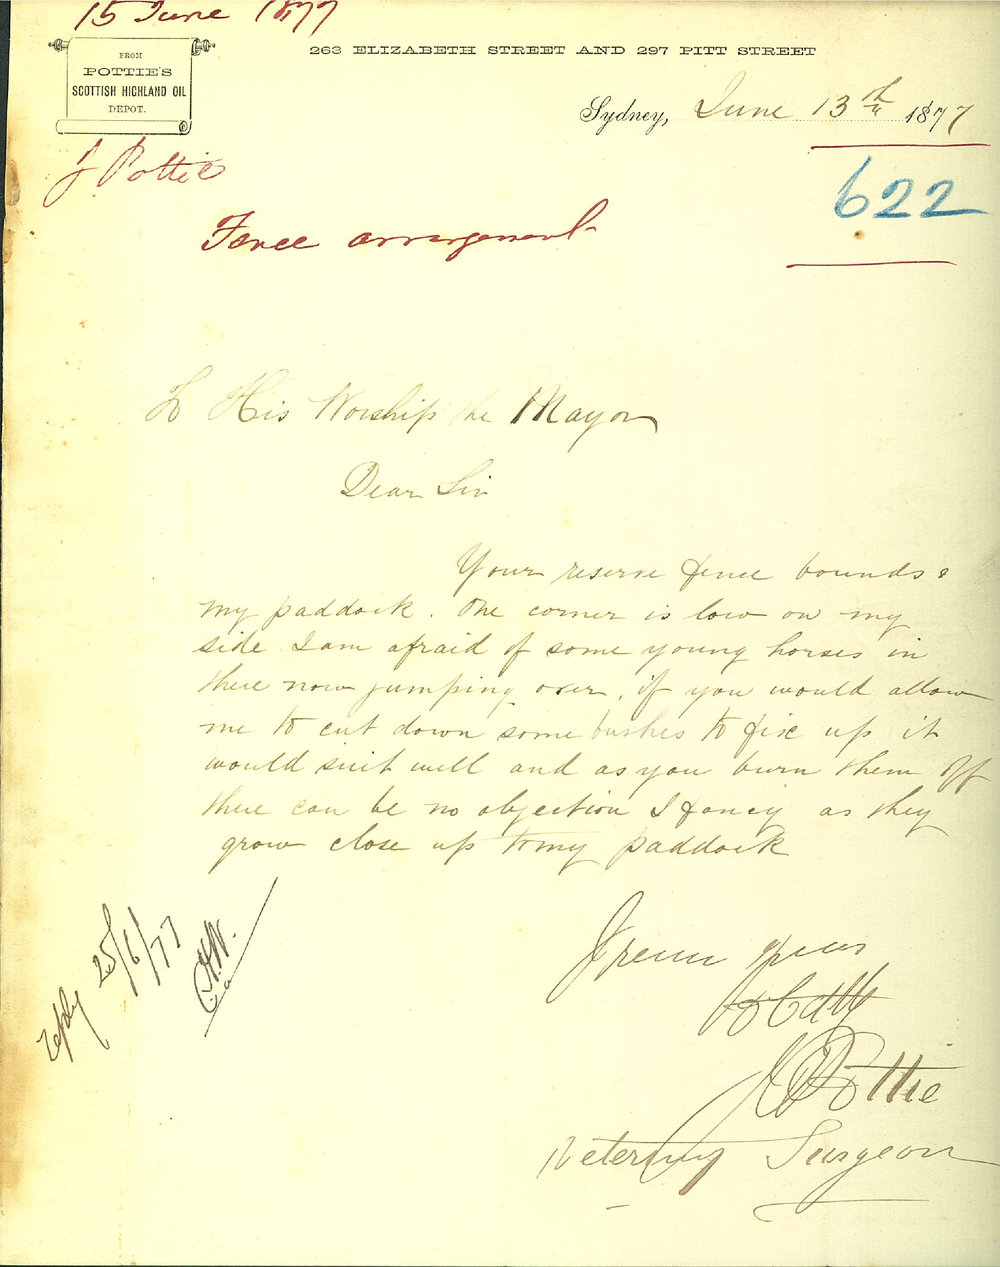 15 June 1877
FROM
POTTIE'S
SCOTTISH HIGHLAND OIL
DEPOT.
263 ELIZABETH STREET AND 297 PITT STREET
Sydney, June 13th 1877
J Pottie
622
Fence arrangement
To His Worship the Mayor
Dear Sir
Your reserve fence bounds
my paddock. One corner is low on my
side I am afraid of some young horses in
there now jumping over, if you would allow
me to cut down some bushes to fix up it
would suit well and as you burn them off
there can be no objection I fancy as they
grow close up to my paddock
reply 25/6/77
I remn yours
J Pottie
Veterinary Surgeon